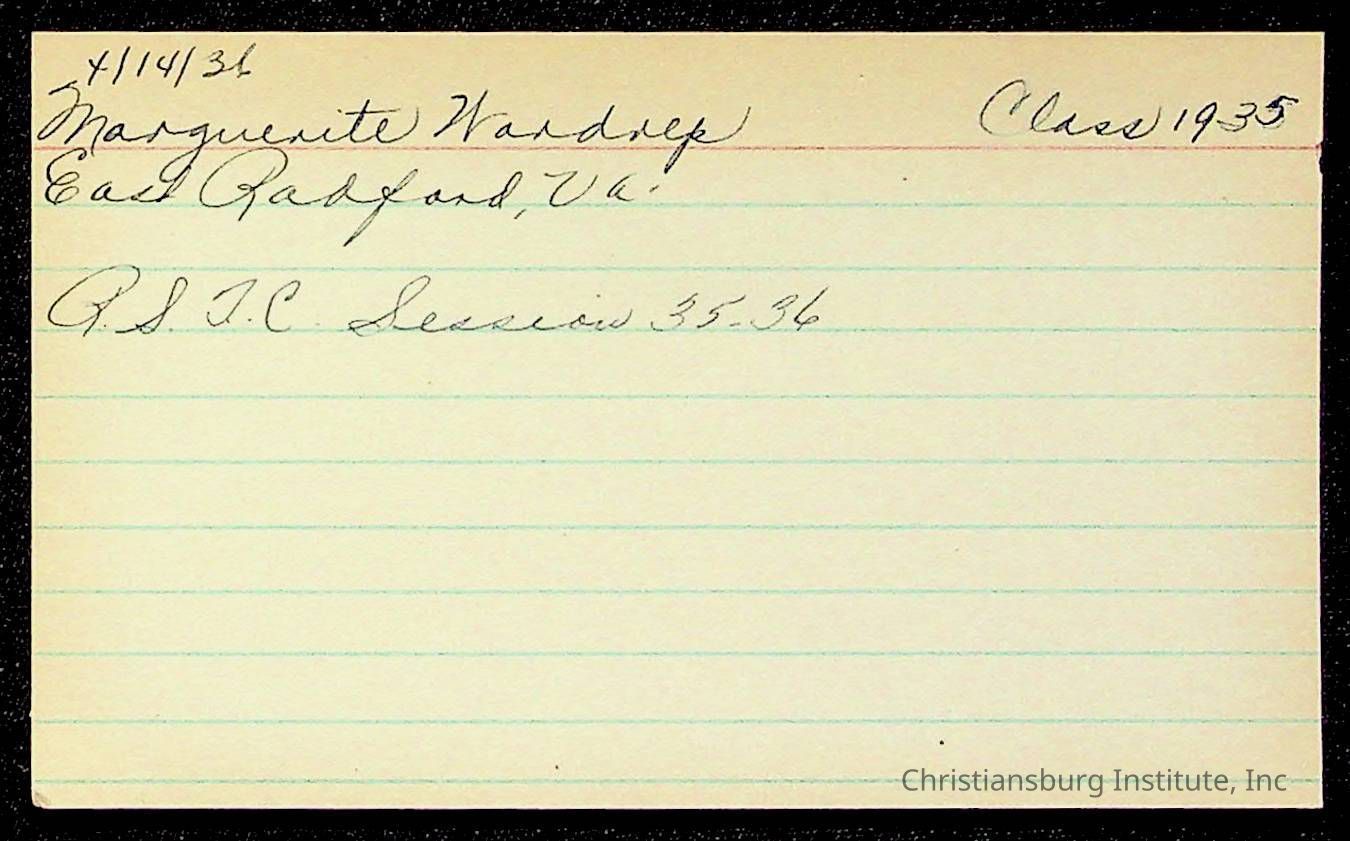 4/14/36
Marguerite Wardrep Class 1935
East Radford, Va.
R.S.T.C. Session 35-36
Christiansburg Institute, Inc